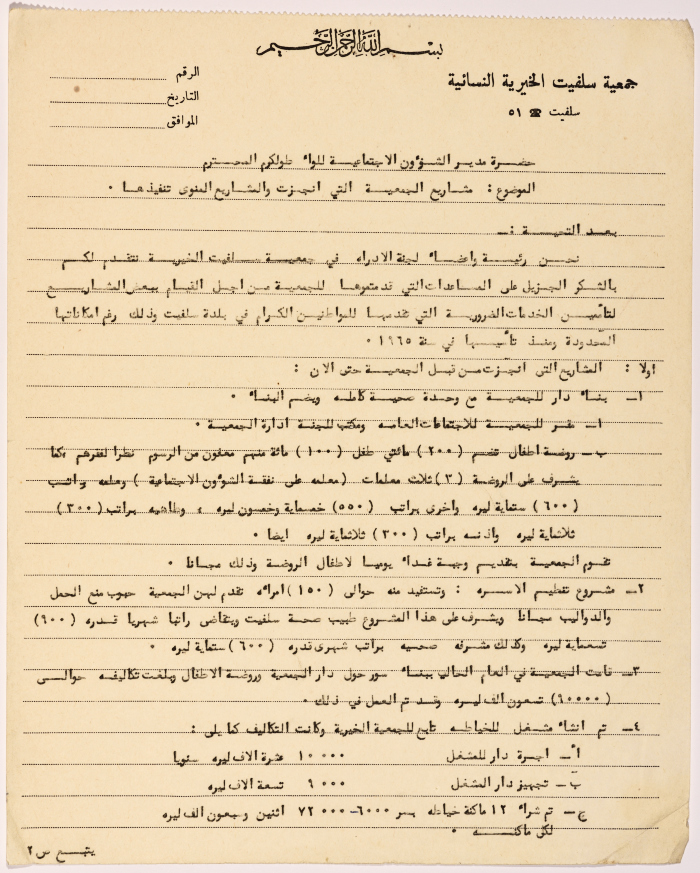 بسم الله الرحمن الرحيم
جمعية سلفيت الخيرية النسائية
سلفيت ☎ ٥١
الرقم
التاريخ
الموافق
حضرة مدير الشؤون الاجتماعية للواء طولكرم المحترم
الموضوع : مشاريع الجمعية التي انجزت والمشاريع المنوى تنفيذها ٠
بعد التحية :ـ
نحن رئيسة واعضاء لجنة الاداره في جمعية سلفيت الخيرية نتقدم لكم
بالشكر الجزيل على المساعدات التي قدمتموها للجمعية من اجل القيام ببعض المشاريع
لتأمين الخدمات الضرورية التي تقدمها للمواطنين الكرام في بلدة سلفيت وذلك رغم امكاناتها
المحدودة ومنذ تأسيسها في سنة ١٩٦٥ ٠
اولا : المشاريع التي انجزت من قبل الجمعية حتى الان :
١ـ بناء دار للجمعية مع وحدة صحية كاملة ويضم البناء ٠
ا ـ مقر للجمعية للاجتماعات العامه ومكتب للجنة ادارة الجمعية ٠
ب ـ روضة اطفال تضم ( ٢٠٠ ) مائتي طفل ( ١٠٠ ) مائة منهم معفون من الرسوم نظرا لفقرهم ،كما
يشرف على الروضة ( ٣ ) ثلاث معلمات ( معلمه على نفقة الشؤون الاجتماعية ) ومعلمه براتب
( ٦٠٠ ) ستماية ليره واخرى براتب ( ٥٥٠ ) خمسماية وخمسون ليره ، وطاهيه براتب ( ٣٠٠ )
ثلاثماية ليره واذنه براتب ( ٣٠٠ ) ثلاثماية ليره ايضا ٠
تقوم الجمعية بتقديم وجبة غداء يوميا لاطفال الروضة وذلك مجانا ٠
٢ـ مشروع تنظيم الاسره : وتستفيد منه حوالي ( ١٥٠ ) امرأه تقدم لهن الجمعية حبوب منع الحمل
والدواليب مجانا ويشرف على هذا المشروع طبيب صحة سلفيت ويتقاضى راتبا شهريا قدره ( ٩٠٠ )
تسعماية ليره وكذلك مشرفه صحيه براتب شهرى قدره ( ٦٠٠ ) ستماية ليره ٠
٣ـ قامت الجمعية في العام الحالي ببناء سور حول دار الجمعية وروضة الاطفال وبلغت تكاليفه حوالي
( ٩٠٠٠٠ ) تسعون الف ليره وقد تم العمل في ذلك ٠
٤ـ تم انشاء مشغل للخياطه تابع للجمعية الخيرية وكانت التكاليف كما يلي :
أ ـ اجرة دار للمشغل ١٠ ٠٠٠ عشرة الاف ليره سنويا
ب ـ تجهيز دار المشغل ٩ ٠٠٠ تسعة الاف ليره
ج ـ تم شراء ١٢ ماكنة خياطه بسعر ٦٠٠٠ـ ٧٢ ٠٠٠ اثنين وسبعون الف ليره
لكل ماكنه ٠
يتبع ص ٢